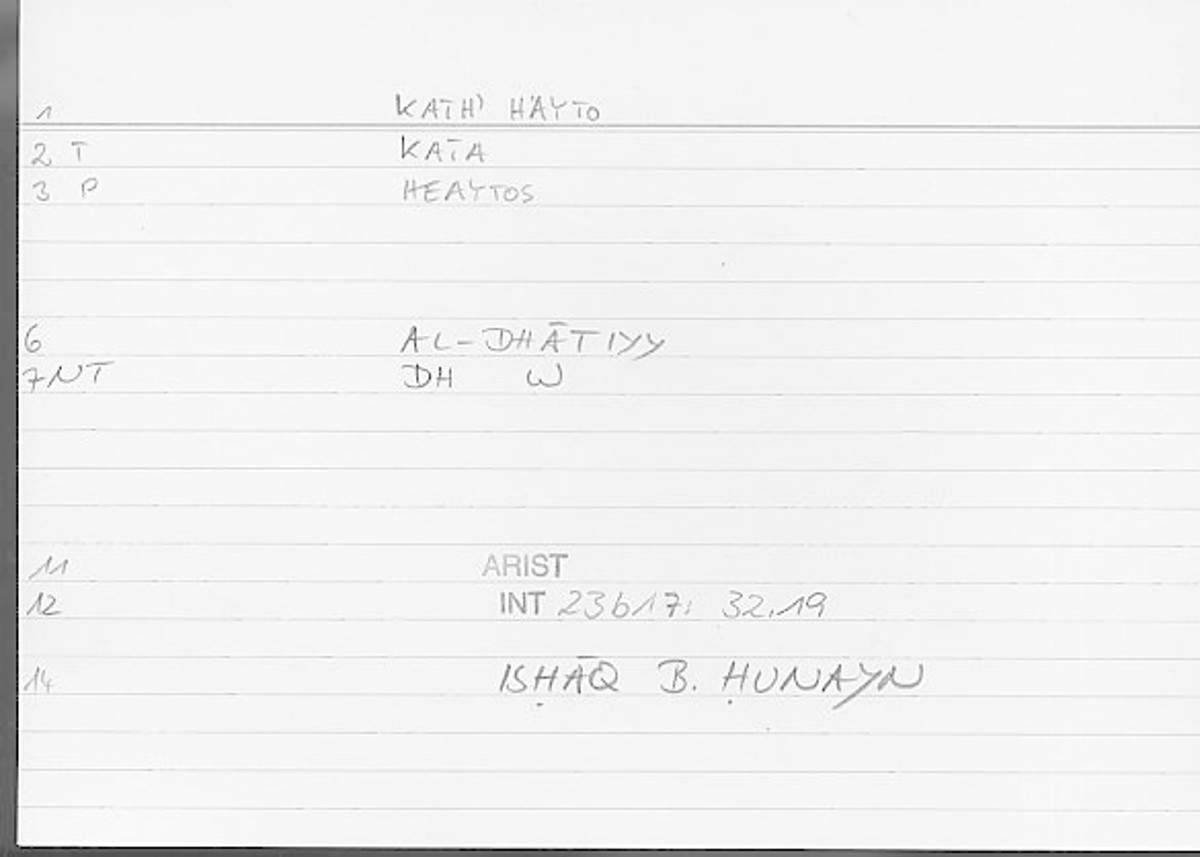 1 KATH' H'AYTO
2 T KATA
3 P HEAYTOS
6 AL-DHĀTIYY
7NT DH W
11 ARIST
12 INT 23b17: 32.19
14 ISḤĀQ B. ḤUNAYN